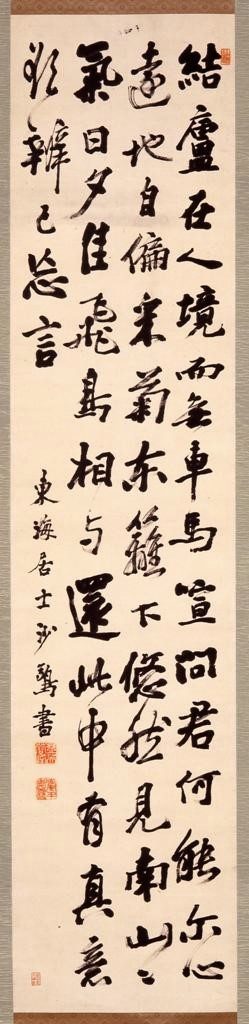 結廬在人境而無車馬宣問君何能尔心
遠地自偏采菊东籬下悠然見南山〻
氣日夕佳飛鳥相与還此中有真意
欲辨已忘言
東海居士沙書